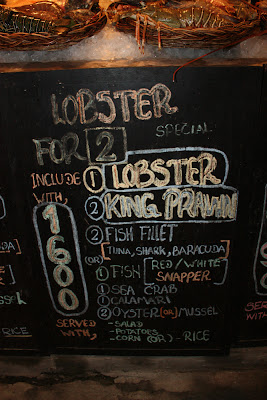 LOBSTER
SPECIAL
FOR 2
INCLUDE
WITH,
1600
1 LOBSTER
2 KING PRAWN
2 FISH FILLET
[TUNA, SHARK, BARACUDA]
(OR)
1 FISH [RED / WHITE
SNAPPER
1 SEA CRAB
1 CALAMARI
2 OYSTER (OR) MUSSEL
SERVED
WITH,
- SALAD
- POTATOES
- CORN (OR) - RICE
RICE